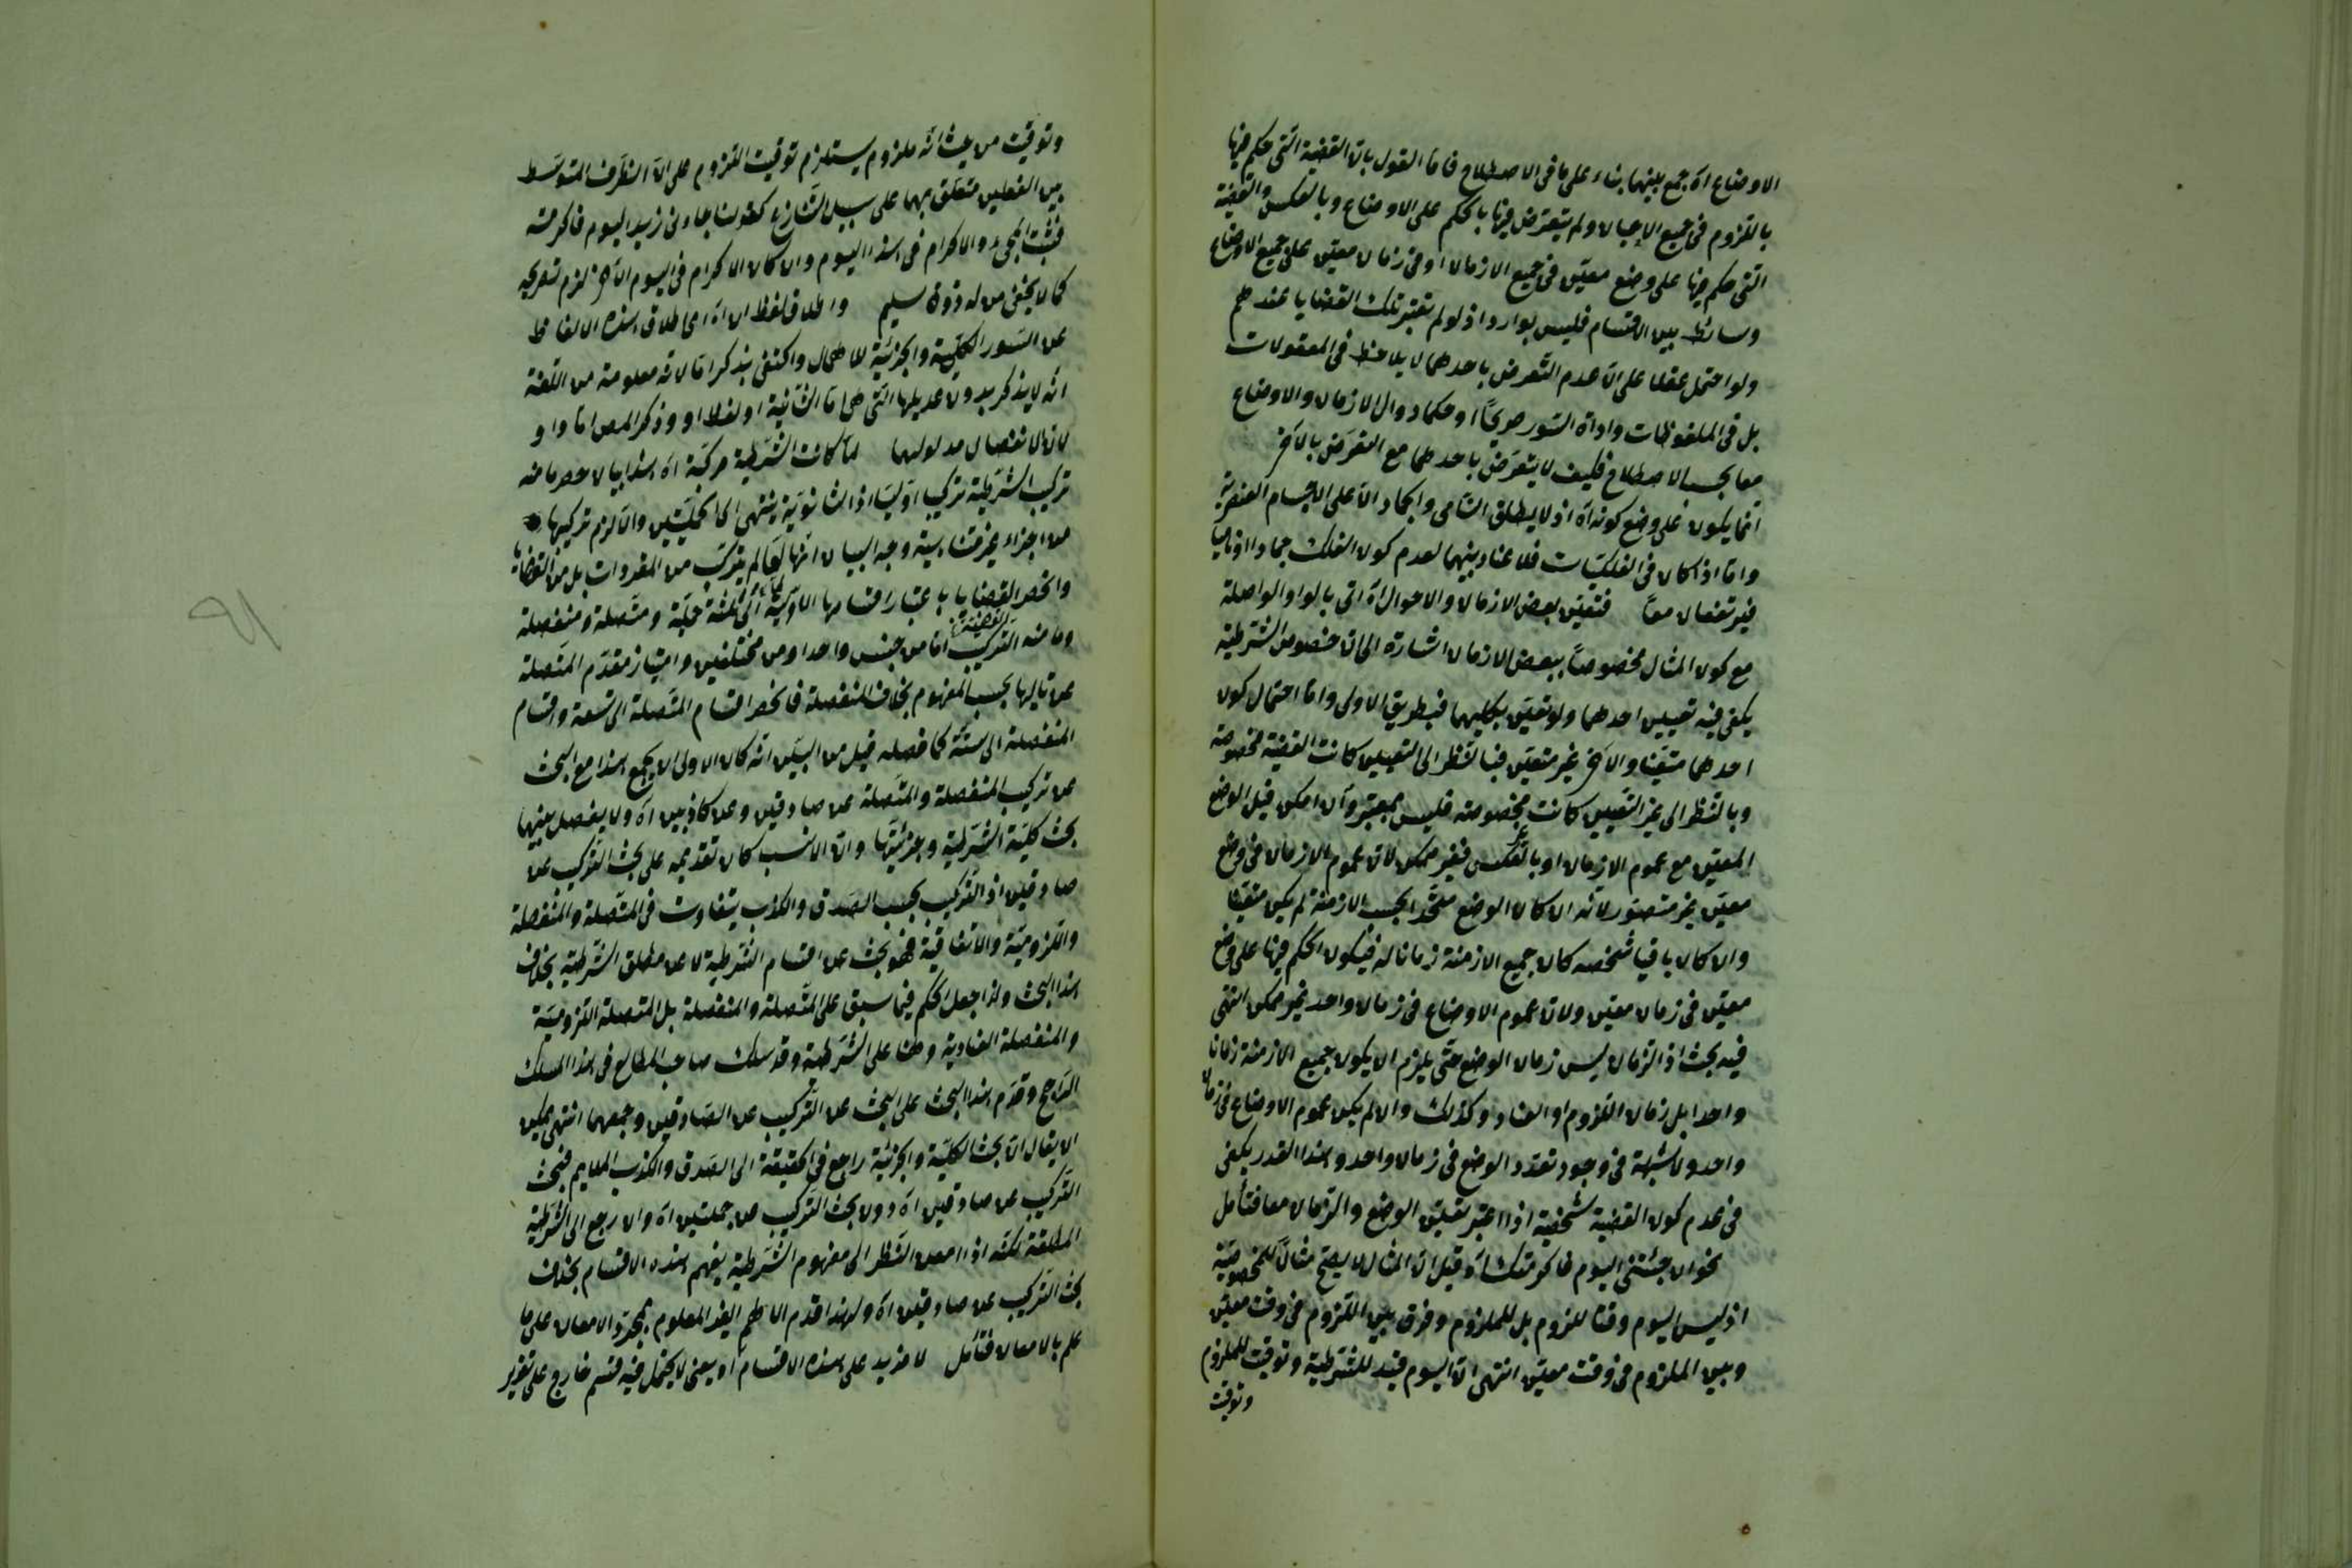 الاوضاع اه جمع بينهما بناء على ما في الاصطلاح فاما القول بان القضية التي حكم فيها
باللزوم في جميع الاحيان ولم يتعرض فيها بالحكم على الاوضاع وبالعكس والقضية
التي حكم فيها على وضع معين في جميع الازمان او في زمان معين على جميع الاوضاع
وسائط بين الاقسام فليس بوارد اذ لو لم تعتبر تلك القضايا عندهم
ولو احتمل عقلا على ان عدم التعرض باحدهما لا يلاحظ في المعقولات
بل في الملفوظات واداة السور صريحا او حكما دوال الازمان والاوضاع
معا بحسب الاصطلاح فكيف لا يتعرض باحدهما مع التعرض بالآخر
انما يكون على وضع كونه اه اذ لا يطلق النامي والجماد الا على الاجسام العنصرية
واما اذا كان في الفلكيات فلا عناد بينهما لعدم كون الفلك جمادا او ناميا
فيرتفعان معا فتعين بعض الازمان والاحوال اه اتى بالواو الواصلة
مع كون المثال مخصوصا ببعض الازمان اشارة الى ان خصوص الشرطية
يكفي فيه تعيين احدهما ولو تعين بكليهما فبطريق الاولى واما احتمال كون
احدهما متعينا والآخر غير متعين فبالنظر الى التعيين كانت القضية مخصوصة
وبالنظر الى غير التعيين كانت غير مخصوصة فليس بمعتبر وان امكن قيل الوضع
المعين مع عموم الازمان او بالعكس فغير ممكن لان عموم الازمان في وضع
معين غير متصور لانه ان كان الوضع متجددا بحسب الازمنة لم يكن متعينا
وان كان باقيا شخصه كان جميع الازمنة زمانا له فيكون الحكم فيها على وضع
معين في زمان معين ولان عموم الاوضاع في زمان واحد غير ممكن انتهى
فيه بحث اذ الزمان ليس زمان الوضع حتى يلزم ان يكون جميع الازمنة زمانا
واحدا بل زمان اللزوم او العناد وكذلك وان لم يكن عموم الاوضاع في زمان
واحد ولا شبهة في وجود تعدد الوضع في زمان واحد وهذا القدر يكفي
في عدم كون القضية شخصية اذا اعتبر تعين الوضع والزمان معا فتأمل
نحو ان جئتني اليوم فاكرمتك اه قيل ان المثال لا يصح مثالا للمخصوصية
اذ ليس اليوم وقتا للزوم بل للملزوم وفرق بين اللزوم في وقت معين
وبين الملزوم في وقت معين انتهى ان اليوم قيد للشرطية وتوقيت للملزوم
وتوقيت
وتوقيت من حيث انه ملزوم يستلزم توقيت اللزوم على ان الظرف المتوسط
بين الفعلين متعلق بهما على سبيل التنازع كقولنا جاءني زيد اليوم فاكرمته
فثبت المجيء والاكرام في هذا اليوم وان كان الاكرام في اليوم الآخر لزم تصريحه
كما لا يخفى من له ذوق سليم واطلاق لفظ ان اه اى اطلاق هذه الالفاظ
عن السور الكلية والجزئية للاهمال واكتفى بذكر اما لانه معلومة من اللغة
انه لا يذكر بدون عديلها التي هي اما الثانية او لفظ او وذكر المص اما و او
لان الانفصال مدلولهما لما كانت الشرطية مركبة اه هذا بيان لحصر ما منه
تركيب الشرطية تركيبا اوليا اذ الثانوية ينتهي الى الحمليتين والا لزم تركيبها
من اجزاء غير متناهية وجه البيان انها لما لم يتركب من المفردات بل من القضايا
وانحصر القضايا باعتبار اقسامها الاولية الى ثلثة حملية ومتصلة ومنفصلة
وما منه التركيب اما من جنس واحد او من مختلفين وامتياز مقدم المتصلة
عن تاليها بحسب المفهوم بخلاف المنفصلة فانحصر اقسام المتصلة الى تسعة واقسام
المنفصلة الى ستة كما فصله قيل من البين انه كان الاولى ان يجمع هذا مع البحث
عن تركيب المنفصلة والمتصلة عن صادقين وعن كاذبين اه ولا يفصل بينهما
بحث كلية الشرطية وجزئيتها وان الانسب كان تقديمه على بحث التركيب عن
صادقين اذ التركيب بحسب الصدق والكذب يتفاوت في المتصلة والمنفصلة
واللزومية والاتفاقية فهو بحث عن اقسام الشرطية لا عن مطلق الشرطية بخلاف
هذا البحث ولذا جعل الحكم فيما سبق على المتصلة والمنفصلة بل المتصلة اللزومية
والمنفصلة العنادية وهنا على الشرطية وقد سلك صاحب المطالع في هذا المسلك
الراجح وقدم هذا البحث على البحث عن التركيب عن الصادقين وجمعهما انتهى يمكن
ان يقال ان بحث الكلية والجزئية راجع في الحقيقة الى الصدق والكذب الملايم فبحث
التركيب عن صادقين اه دون بحث التركيب من حمليتين اه وان رجع الى الشرطية
المطلقة لكنه اذا امعن النظر الى مفهوم الشرطية يفهم هذه الاقسام بخلاف
بحث التركيب عن صادقين اه ولهذا قدم الاهم الغير المعلوم بمجرد الامعان على ما
علم بالامعان فتأمل لا مزيد على هذه الاقسام اه يعني لا يحتمل فيه قسم خارج على تقرير